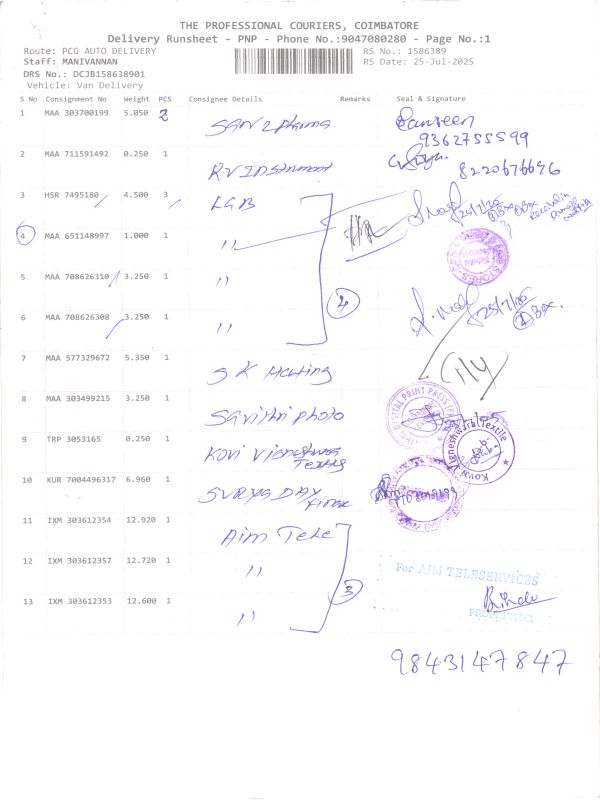 THE PROFESSIONAL COURIERS, COIMBATORE
Delivery Runsheet - PNP - Phone No.:9047080280 - Page No.:1
Route: PCG AUTO DELIVERY
RS No.: 1586389
Staff: MANIVANNAN
RS Date: 25-Jul-2025
DRS No.: DCJB158638901
Vehicle: Van Delivery
S No Consignment No Weight PCS Consignee Details Remarks Seal & Signature
1 MAA 303700199 5.050 2
9362755599
2 MAA 711591492 0.250 1 RV Instrument
8220676696
3 HSR 7495180 4.500 3 LGB 25/7/25
4 MAA 651148997 1.000 1 "
5 MAA 708626310 3.250 1 "
4
6 MAA 708626308 3.250 1 " 25/7/25 1 Box.
7 MAA 577329672 5.350 1 S K
8 MAA 303499215 3.250 1 Savithri photo
9 TRP 3053165 0.250 1 Kovi Vigneshwra
Textile
Kovai Vigneshwara Textile
10 KUR 7004496317 6.960 1 SURYA DAY
11 IXM 303612354 12.920 1 Aim Tele
12 IXM 303612357 12.720 1 "
3
For AIM TELESERVICES
13 IXM 303612353 12.600 1 "
Bindu
PROPRIETOR
9843147847